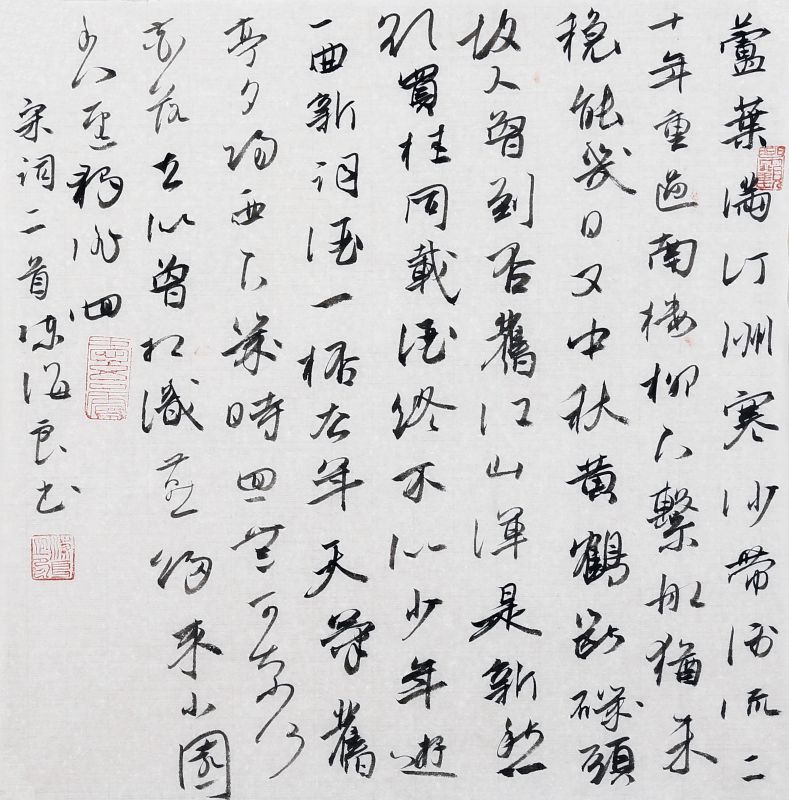 蘆葉滿汀洲寒沙帶淺流二
十年重過南樓柳下繫船猶未
穩能幾日又中秋黃鶴斷磯頭
故人曾到否舊江山渾是新愁
欲買桂同載酒終不似少年遊
一曲新詞酒一杯去年天氣舊
亭夕陽西下幾時回無可奈何
花落去似曾相識燕歸來小園
香徑獨徘徊
宋詞二首陳海良書